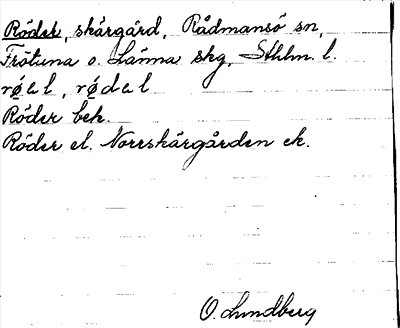 Röder, skärgård, Rådmansö sn,
Frötuna o. Länna skg, Sthlm. l.
Röder bek.
Röder el. Norrskärgården ek.
O. Lundberg